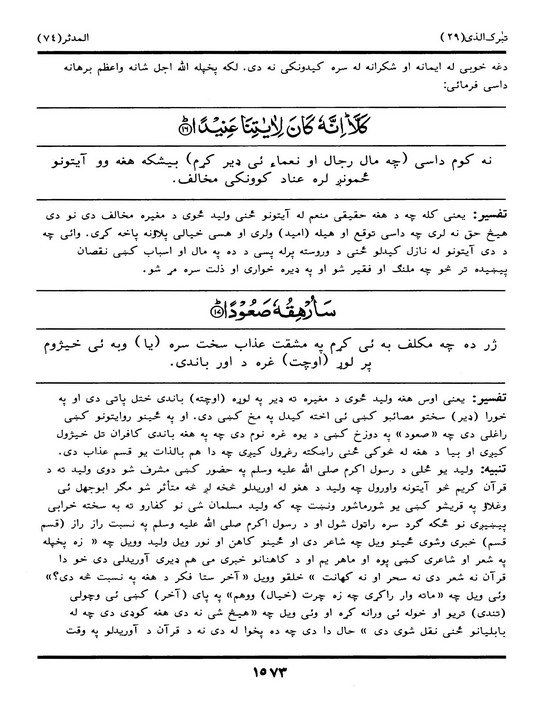 تبٰرک الذي(۲۹) المدثر(۷۴)
دغه خوبی له ایمانه او شکرانه له سره کیدونکی نه دی. لکه پخپله الله اجل شانه واعظم برهانه
داسی فرمائی:
كَلَّا اِنَّهٗ كَانَ لِاٰيٰتِنَا عَنِيْدًا ﴿۱۶﴾
نه کوم داسی (چه مال رجال او نعماء ئی ډیر کړم) بیشکه هغه وو آیتونو
ځمونږ لره عناد کوونکی مخالف.
تفسیر: یعنی کله چه د هغه حقیقی منعم له آیتونو ځنی ولید ځوی د مغیره مخالف دی نو دی
هیڅ حق نه لری چه داسی توقع او هیله (امید) ولری او هسی خیالی پلاؤنه پاخه کړی. وائی چه
د دی آیتونو له نازل کیدلو ځنی د وروسته پرله پسی د ده په مال او اسباب کښی نقصان
پیښیده تر څو چه ملنګ او فقیر شو او په ډیره خواری او ذلت سره مړ شو.
سَاُرْهِقُهٗ صَعُوْدًا ﴿۱۷﴾
ژر ده چه مکلف به ئی کړم په مشقت عذاب سخت سره (یا) وبه ئی خیژوم
پر لوړ (اوچت) غره د اور باندی.
تفسیر: یعنی اوس هغه ولید ځوی د مغیره ته ډیر په لوړه (اوچته) باندی ختل پاتی دی او په
خورا (ډیر) سختو مصائبو کښی ئی اخته کیدل په مخ کښی دی. او په ځینو روایتونو کښی
راغلی دی چه «صعود» په دوزخ کښی د یوه غره نوم دی چه په هغه باندی کافران تل خیژول
کیږی او بیا د هغه له څوکی ځنی راښکته رغړول کیږی چه دا هم بالذات یو قسم عذاب دی.
تنبیه: ولید یو ځلی د رسول اکرم صلی الله علیه وسلم په حضور کښی مشرف شو دوی ولید ته د
قرآن کریم څو آیتونه واورول چه ولید د هغو له اوریدلو څخه لږ څه متأثر شو مګر ابوجهل ئی
وغلاؤ په قریشو کښی یو شورماشور ونښت چه که ولید مسلمان شی نو کفارو ته به سخته خرابی
پیښیږی نو ځکه ګرد سره راټول شول او د رسول اکرم صلی الله علیه وسلم په نسبت راز راز (قسم
قسم) خبری وشوی ځینو ویل چه شاعر دی او ځینو کاهن او نور ویل ولید وویل چه « زه پخپله
په شعر او شاعری کښی پوه او ماهر یم او د کاهنانو خبری می هم ډیری آوریدلی دی خو دا
قرآن نه شعر دی نه سحر او نه کهانت » خلقو وویل «آخر ستا فکر د هغه په نسبت څه دی؟»
وئی ویل چه «ماته وار راکړی چه زه چرت (خیال) ووهم» په پای (آخر) کښی ئی وچولی
(تندی) تریو او خوله ئی ورانه کړه او وئی ویل چه «هیڅ شی نه دی هغه کوډی دی چه له
بابلیانو ځنی نقل شوی دی » حال دا دی چه ده پخوا له دی نه د قرآن د آوریدلو په وقت
۱۵۷۳